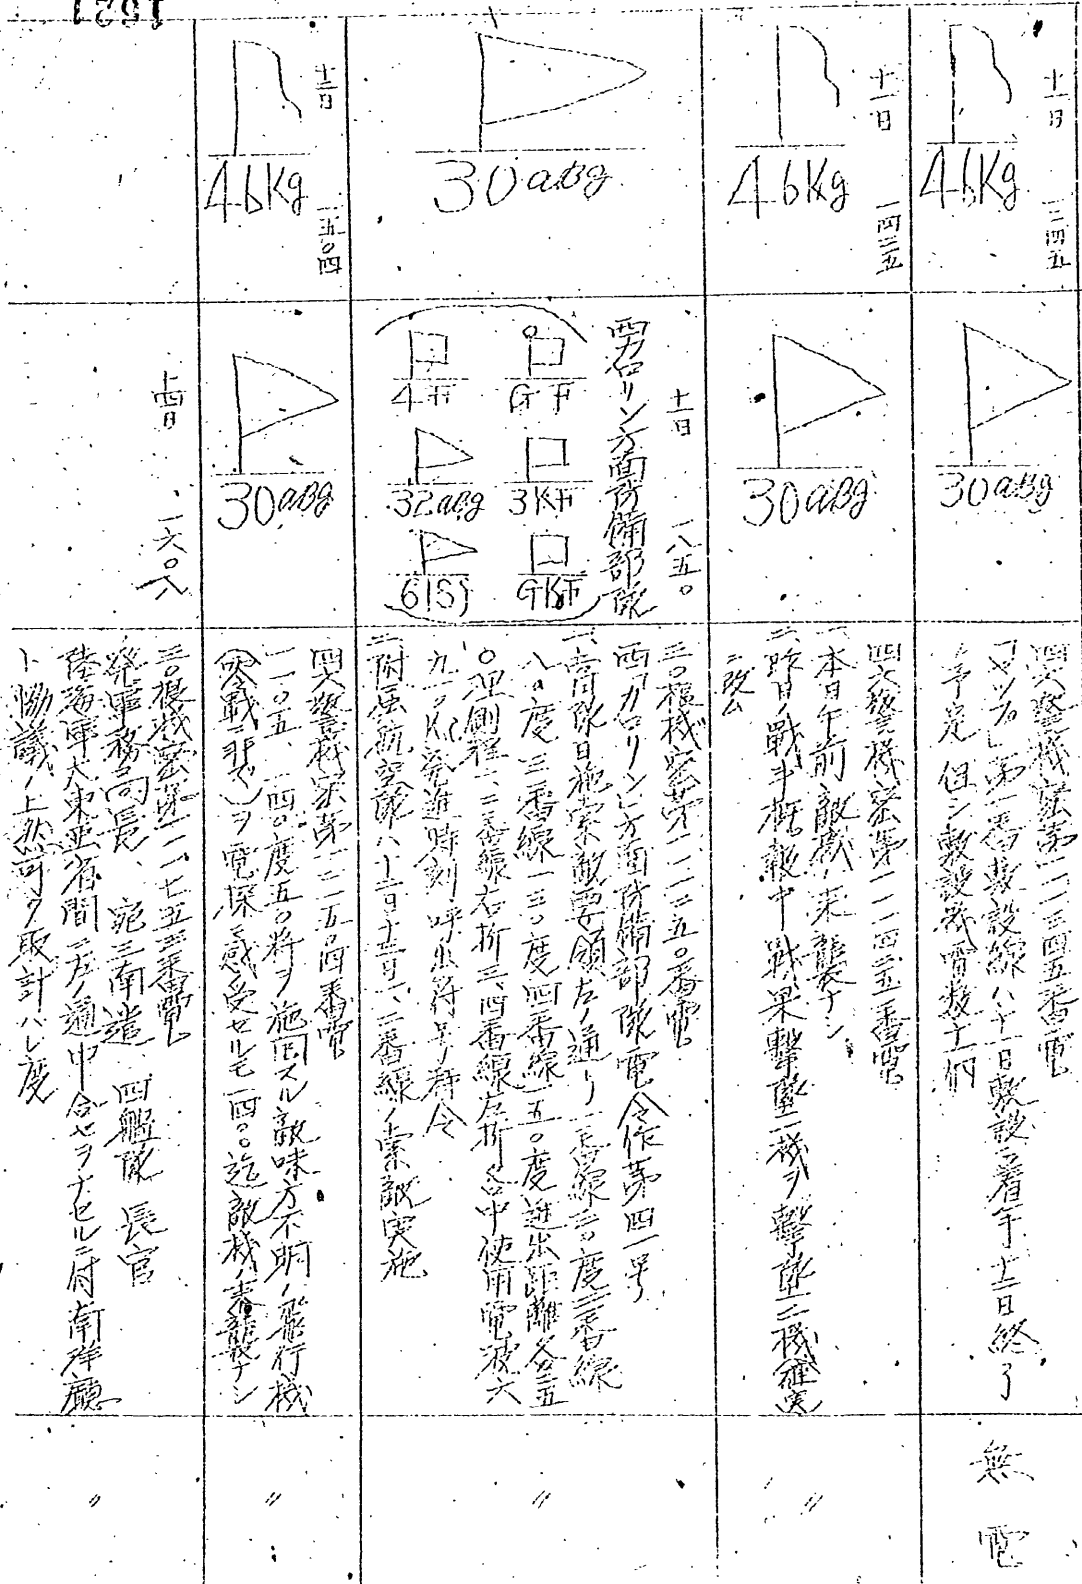 十一日 一二四五
46Kg
30abg
四六警機密第一一一二四五番電
「マップ」第一番敷設線ハ十一日敷設ニ着手十二日終了
ノ予定 但シ敷設機雷数十一個
無電
十一日 一四二五
46Kg
30abg
四六警機密第一一一四二五番電
一、本日午前敵機ノ来襲ナシ
二、昨日ノ戦斗概報中戦果撃墜一機ヲ撃墜二機確実
ニ改ム
〃
30abg
十一日 一八五〇
西カロリン方面防備部隊
GF
3KF
GKF
4F
32abg
61Sf
三〇根機密第一一一二五〇番電
西「カロリン」方面防備部隊電令作第四一号
一、当隊日施索敵要領左ノ通リ 一番線三〇度二番線
八〇度三番線一三〇度四番線一五〇度進出距離各二五
〇浬側程一、二番線右折三、四番線左折 各中使用電波六
九一〇KC発進時刻呼出符号ノ件令
二、附属航空隊ハ十二日十三日一、二番線ノ索敵実施
〃
十二日 一五〇四
46Kg
30abg
四六警機密第一二一五〇四番電
一一〇五、一四〇度五〇粁ヲ旋回スル敵味方不明ノ飛行機
ヲ電探ニ感受セルモ一四〇〇迄敵機ノ来襲ナシ
〃
十四日 一六〇八
三〇根機密第一一一七五三番電
発軍務局長 宛三南遣、四艦隊長官
陸海軍大東亜省間ニ左ノ通申合セヲナセルニ付南洋廳
ト協議ノ上然可ク取計ハレ度
〃